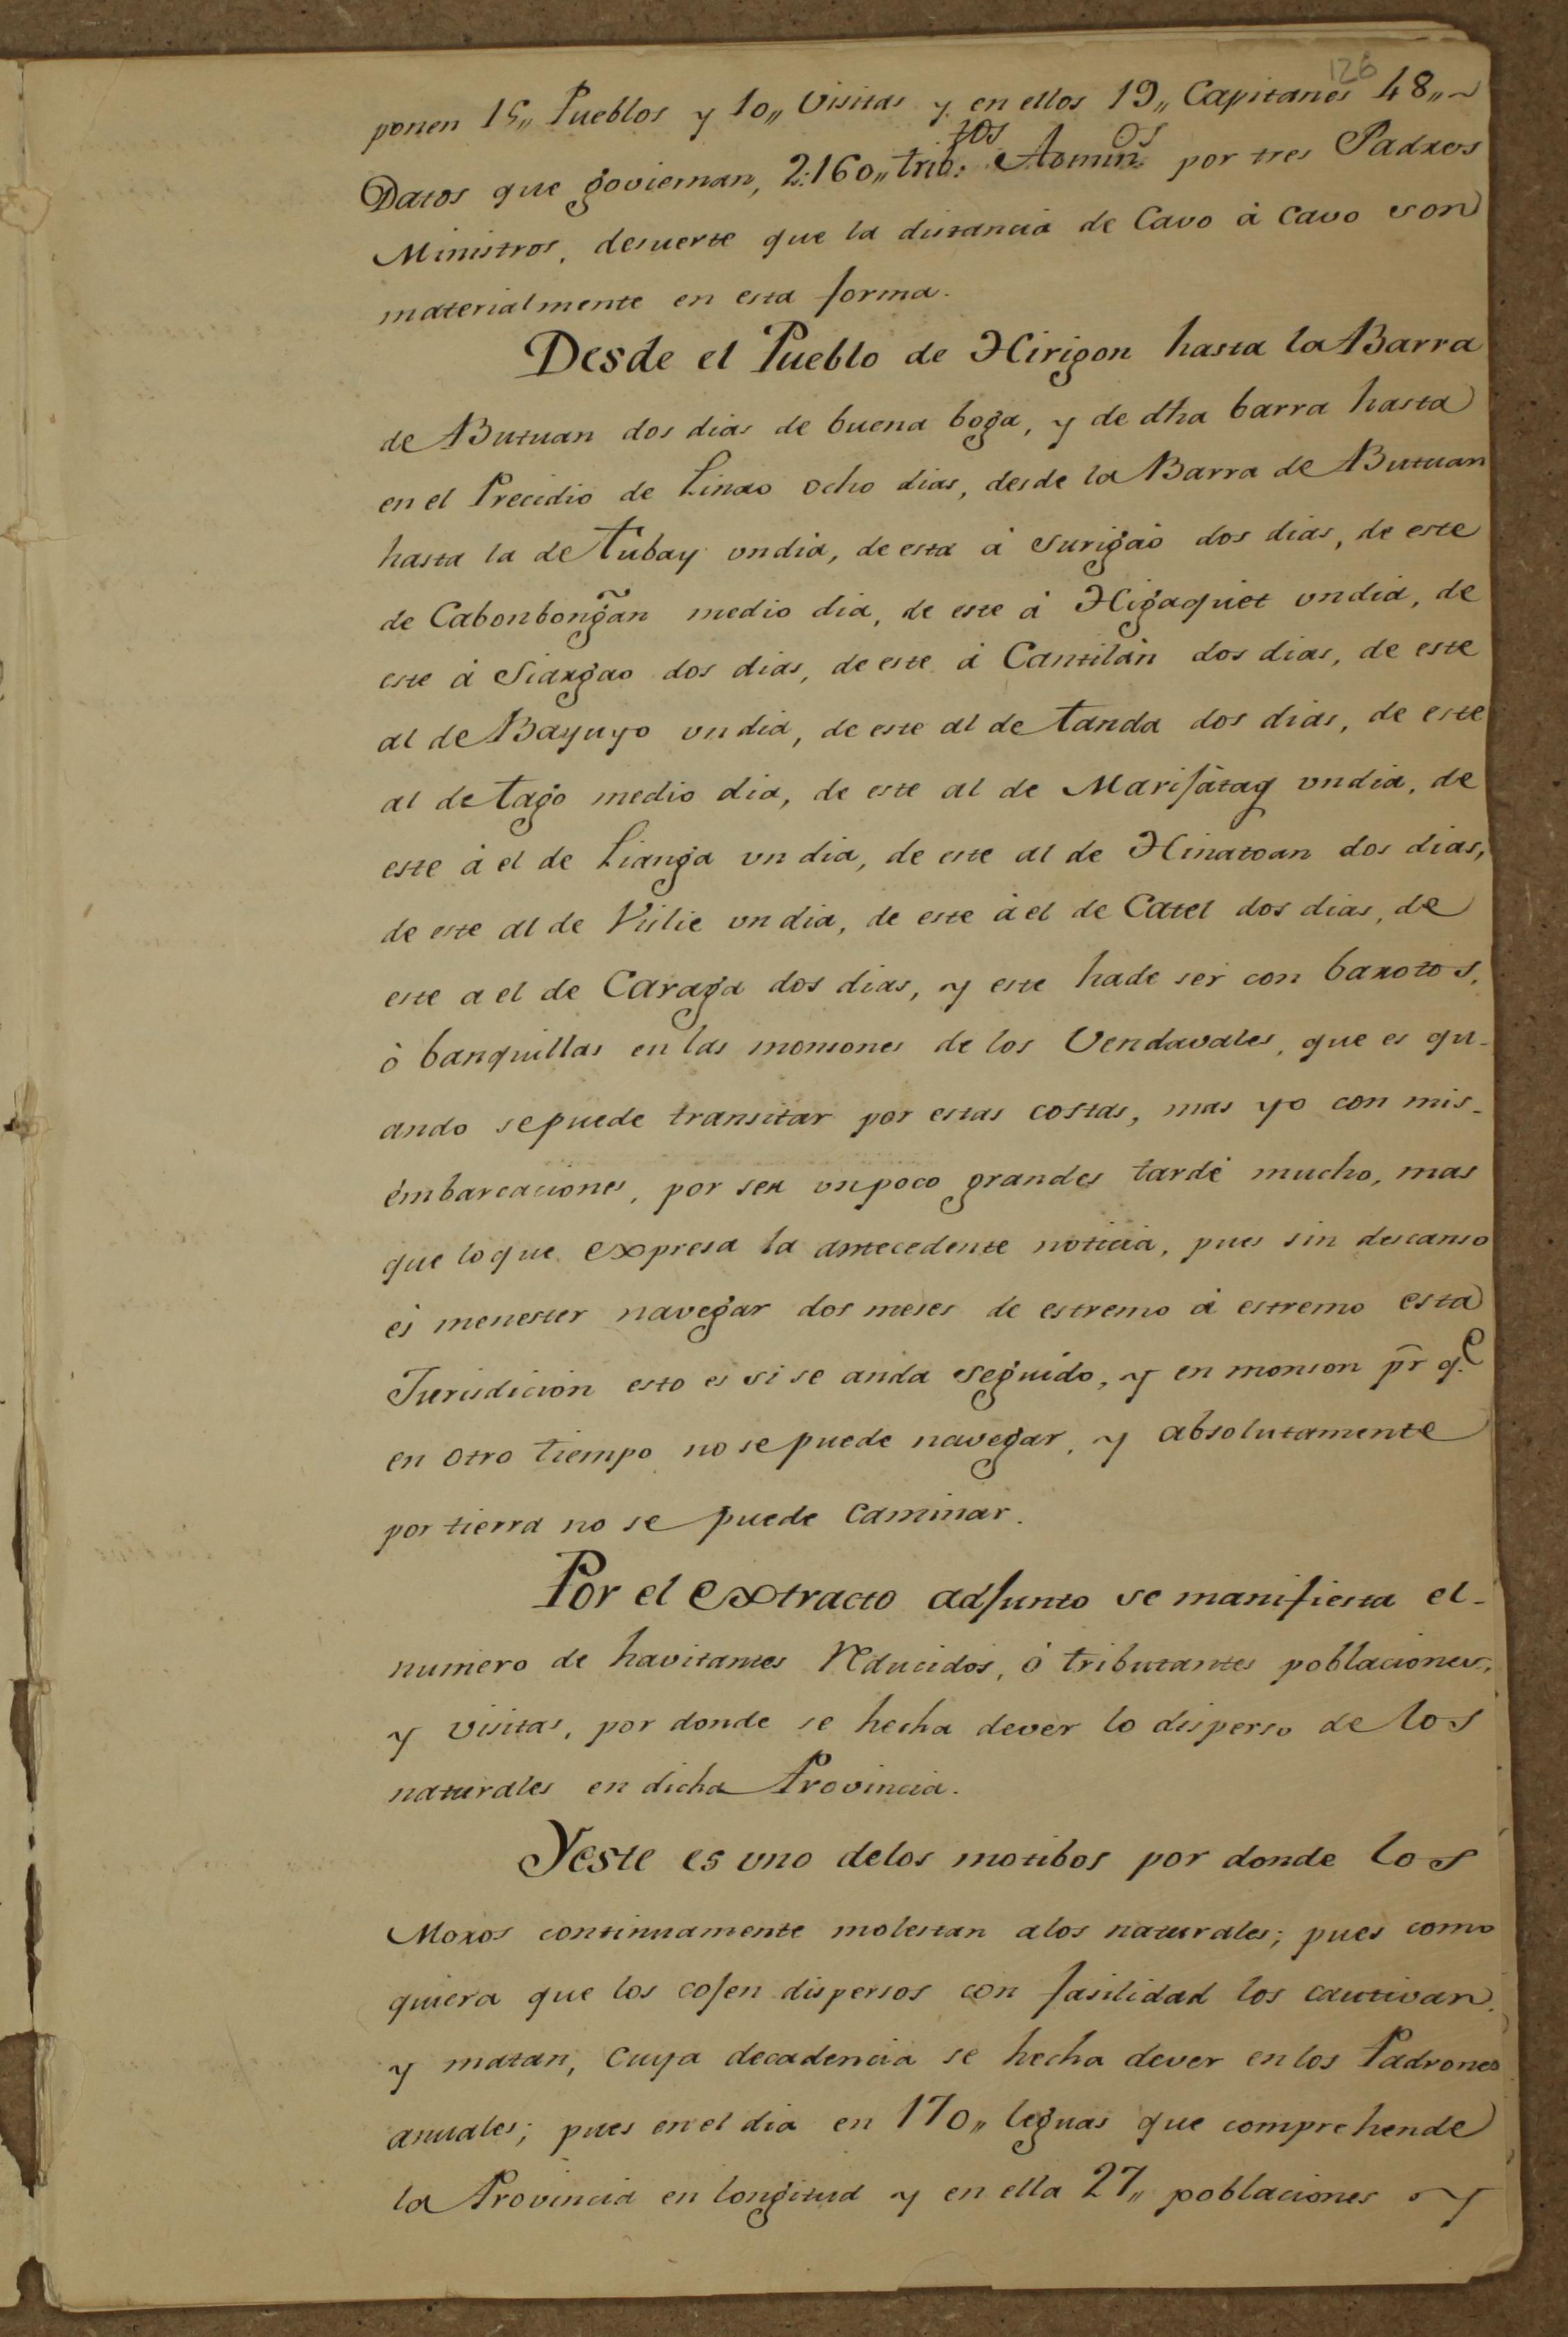 126
ponen 15,, Pueblos y 10,, Visitas y en ellos 19,, Capitanes 48,,
Datos que goviernan, 2:160,, trib.tos Admin.os por tres Padres
Ministros, desuerte que la distancia de Cavo à Cavo son
materialmente en esta forma.
Desde el Pueblo de Hirigon hasta la Barra
de Butuan dos dias de buena boga, y de dha barra hasta
en el Precidio de Linao ocho dias, desde la Barra de Butuan
hasta la de Tubay un dia, de esta à Surigào dos dias, de este
de Cabonbongãn medio dia, de este à Higaquiet un dia, de
este à Siargao dos dias, de este à Cantilàn dos dias, de este
al de Bayuyo un dia, de este al de Tanda dos dias, de este
al de Tago medio dia, de este al de Marijàtag un dia, de
este à el de Lianga un dia, de este al de Hinatoan dos dias,
de este al de Vislic un dia, de este à el de Catel dos dias, de
este a el de Caraga dos dias, y este hade ser con barotos,
ò banquillas en las monsones de los Vendavales, que es qu-
ando sepuede transitar por estas costas, mas yo con mis-
émbarcaciones, por ser unpoco grandes tardé mucho, mas
que loque expresa la antecedente noticia, pues sin descanso
és menester navegar dos meses de estremo à estremo esta
Jurisdicion esto es si se anda seguido, y en monson pr q.e
en otro tiempo no se puede navegar, y absolutamente
por tierra no se puede Caminar.
Por el extracto adjunto se manifiesta el-
numero de havitantes Reducidos, ó tributantes poblaciones,
y visitas, por donde se hecha dever lo disperso de los
naturales en dicha Provincia.
Yeste es uno delos motibos por donde los
Moros continuamente molestan alos naturales; pues como
quiera que los cojen dispersos con fasilidad los cautivan
y matan, Cuya decadencia se hecha dever en los Padrones
anuales; pues en el dia en 170,, leguas que comprehende
la Provincia en longitud y en ella 27,, poblaciones y